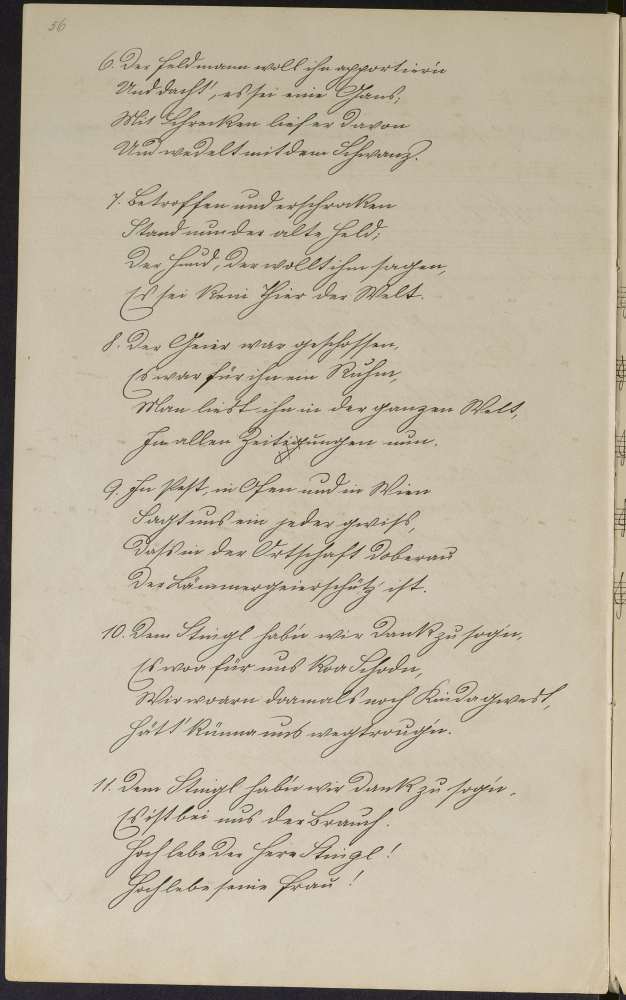 56
6. Der Feldmann woll ihn apportier'n
Und dacht', es sei eine Gans;
Mit Schrecken lief er davon
Und wedelt mit dem Schwanz.
7. Betroffen und erschrocken
Stand nun der alte Held;
Der Hund, der wollt ihm sagen,
Es sei kein Thier der Welt.
8. Der Geier war geschossen,
Es war für ihn ein Ruhm,
Man liest ihn in der ganzen Welt,
In allen Zeitigungen nun.
9. In Pest, in Ofen und in Wien
Sagt uns ein jeder gewiß,
Dass in der Ortschaft Doberau
Der Lämmergeierschütz ist.
10. Dem Stingl hab'n wir Dank zu sog'n,
Es woa für uns koa Schod'n,
Wir woarn doamals noch Kinda gwest,
Hätt' künna uns wegtroug'n.
11. Dem Stingl hab'n wir Dank zu sog'n,
Es ist bei uns der Brauch.
Hoch lebe der Herr Stingl!
Hoch lebe seine Frau!